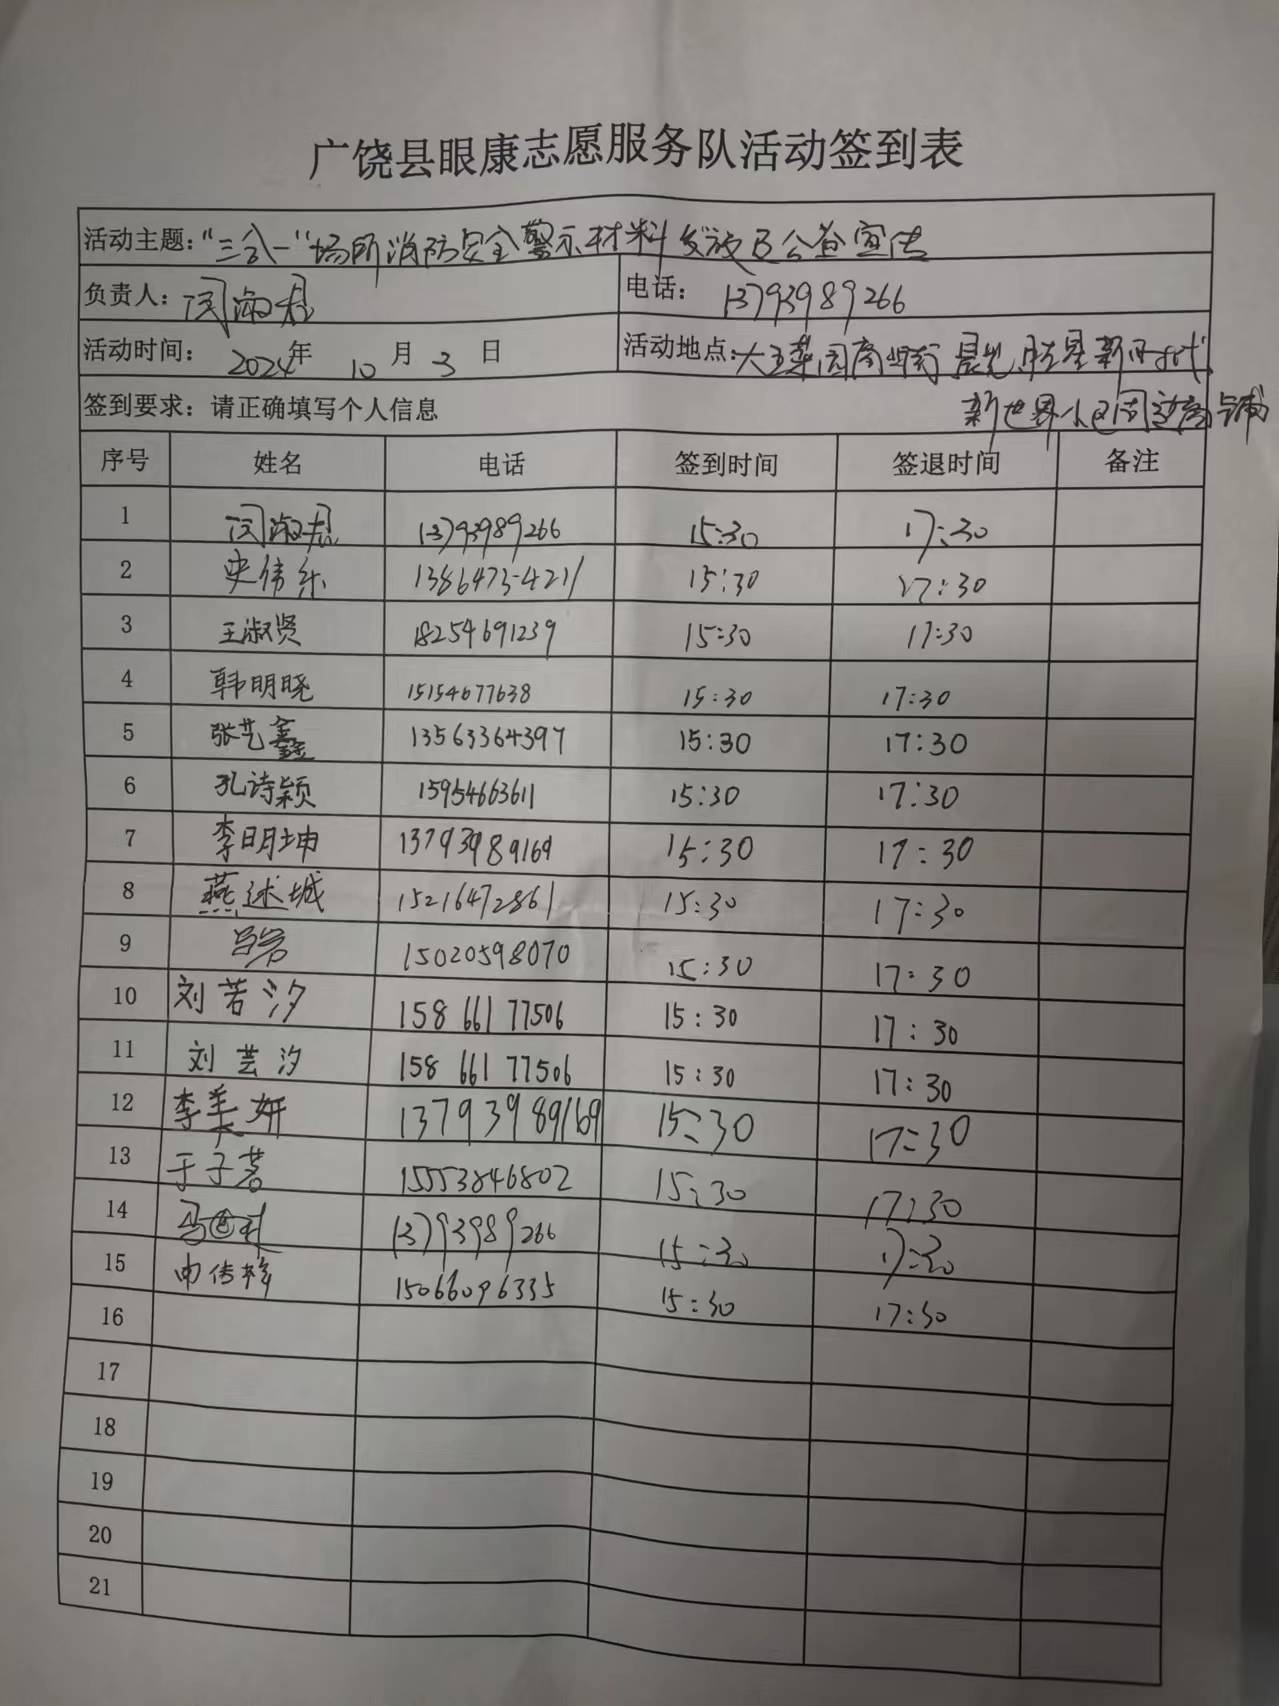 广饶县眼康志愿服务队活动签到表
活动主题：“三合一”场所消防安全警示材料发放及公益宣传
负责人：闫淑君 电话：13793989266
活动时间：2024年 10月 3日 活动地点：大王菜园商业街 晨光 胜星新时代
签到要求：请正确填写个人信息 新世界小区周边商铺
序号 姓名 电话 签到时间 签退时间 备注
1 闫淑君 13793989266 15:30 17:30
2 史伟乐 13864734211 15:30 17:30
3 王淑贤 18254691239 15:30 17:30
4 韩明晓 15154677638 15:30 17:30
5 张艺鑫 13563364397 15:30 17:30
6 孔诗颖 15954663611 15:30 17:30
7 李明坤 13793989169 15:30 17:30
8 燕述城 15216472861 15:30 17:30
9 15020598070 15:30 17:30
10 刘若汐 158 661 77506 15:30 17:30
11 刘芸汐 158 661 77506 15:30 17:30
12 李美妍 13793989169 15:30 17:30
13 于子茗 15553846802 15:30 17:30
14 马 13793989266 15:30 17:30
15 传 15066096335 15:30 17:30
16
17
18
19
20
21